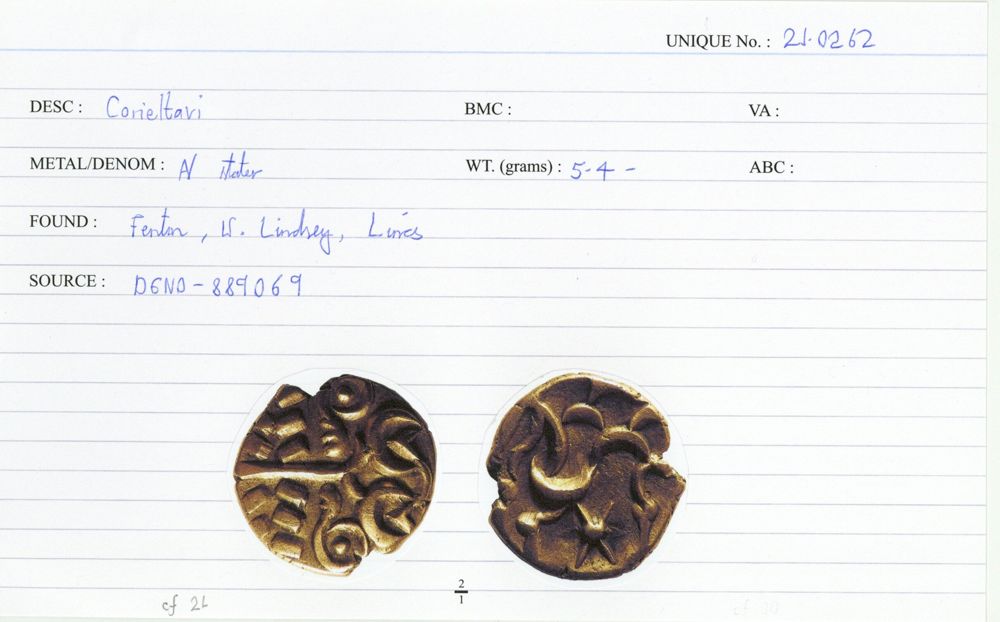 UNIQUE No. : 21.0262
DESC : Corieltavi BMC : VA :
METAL/DENOM : AV stater WT. (grams) : 5.4 - ABC :
FOUND : Fenton, W. Lindsey, Lincs
SOURCE : DENO-889069
2
1
cf 21